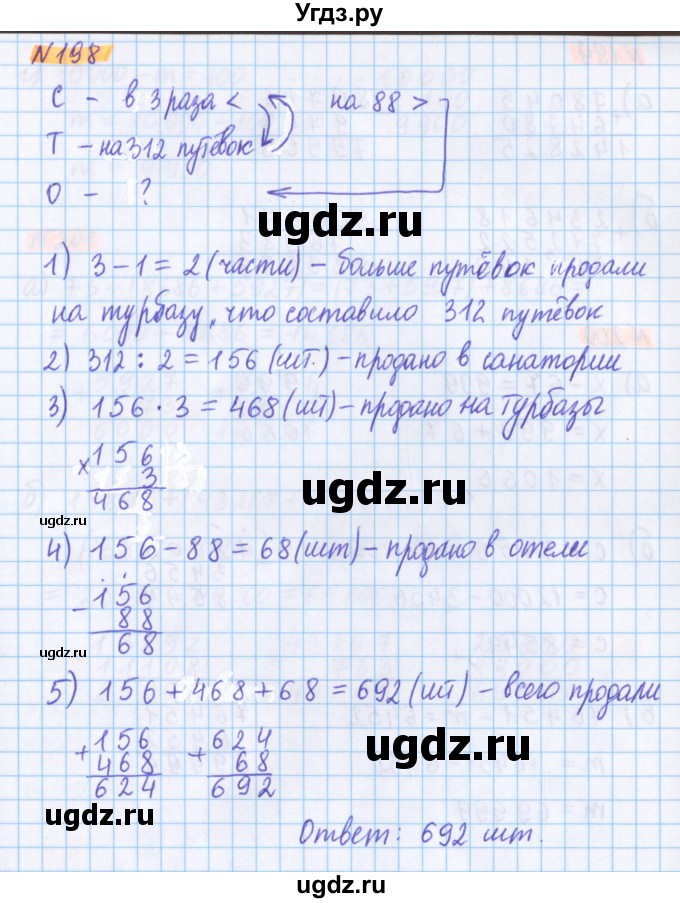 Угдз.ру
N198
С - в 3 раза < на 88 >
Т - на 312 путёвок
О - ?
ugdz.ru
1) 3 - 1 = 2 (части) - больше путёвок продали
на турбазу, что составило 312 путёвок
2) 312 : 2 = 156 (шт.) - продано в санатории
3) 156 · 3 = 468 (шт) - продано на турбазы
ugdz.ru
× 156
3
468
ugdz.ru
4) 156 - 88 = 68 (шт) - продано в отели
- 156
88
68
ugdz.ru
ugdz.ru
5) 156 + 468 + 68 = 692 (шт) - всего продали
+ 156 + 624
468 68
624 692
ugdz.ru
ugdz.ru
Ответ: 692 шт.
ugdz.ru